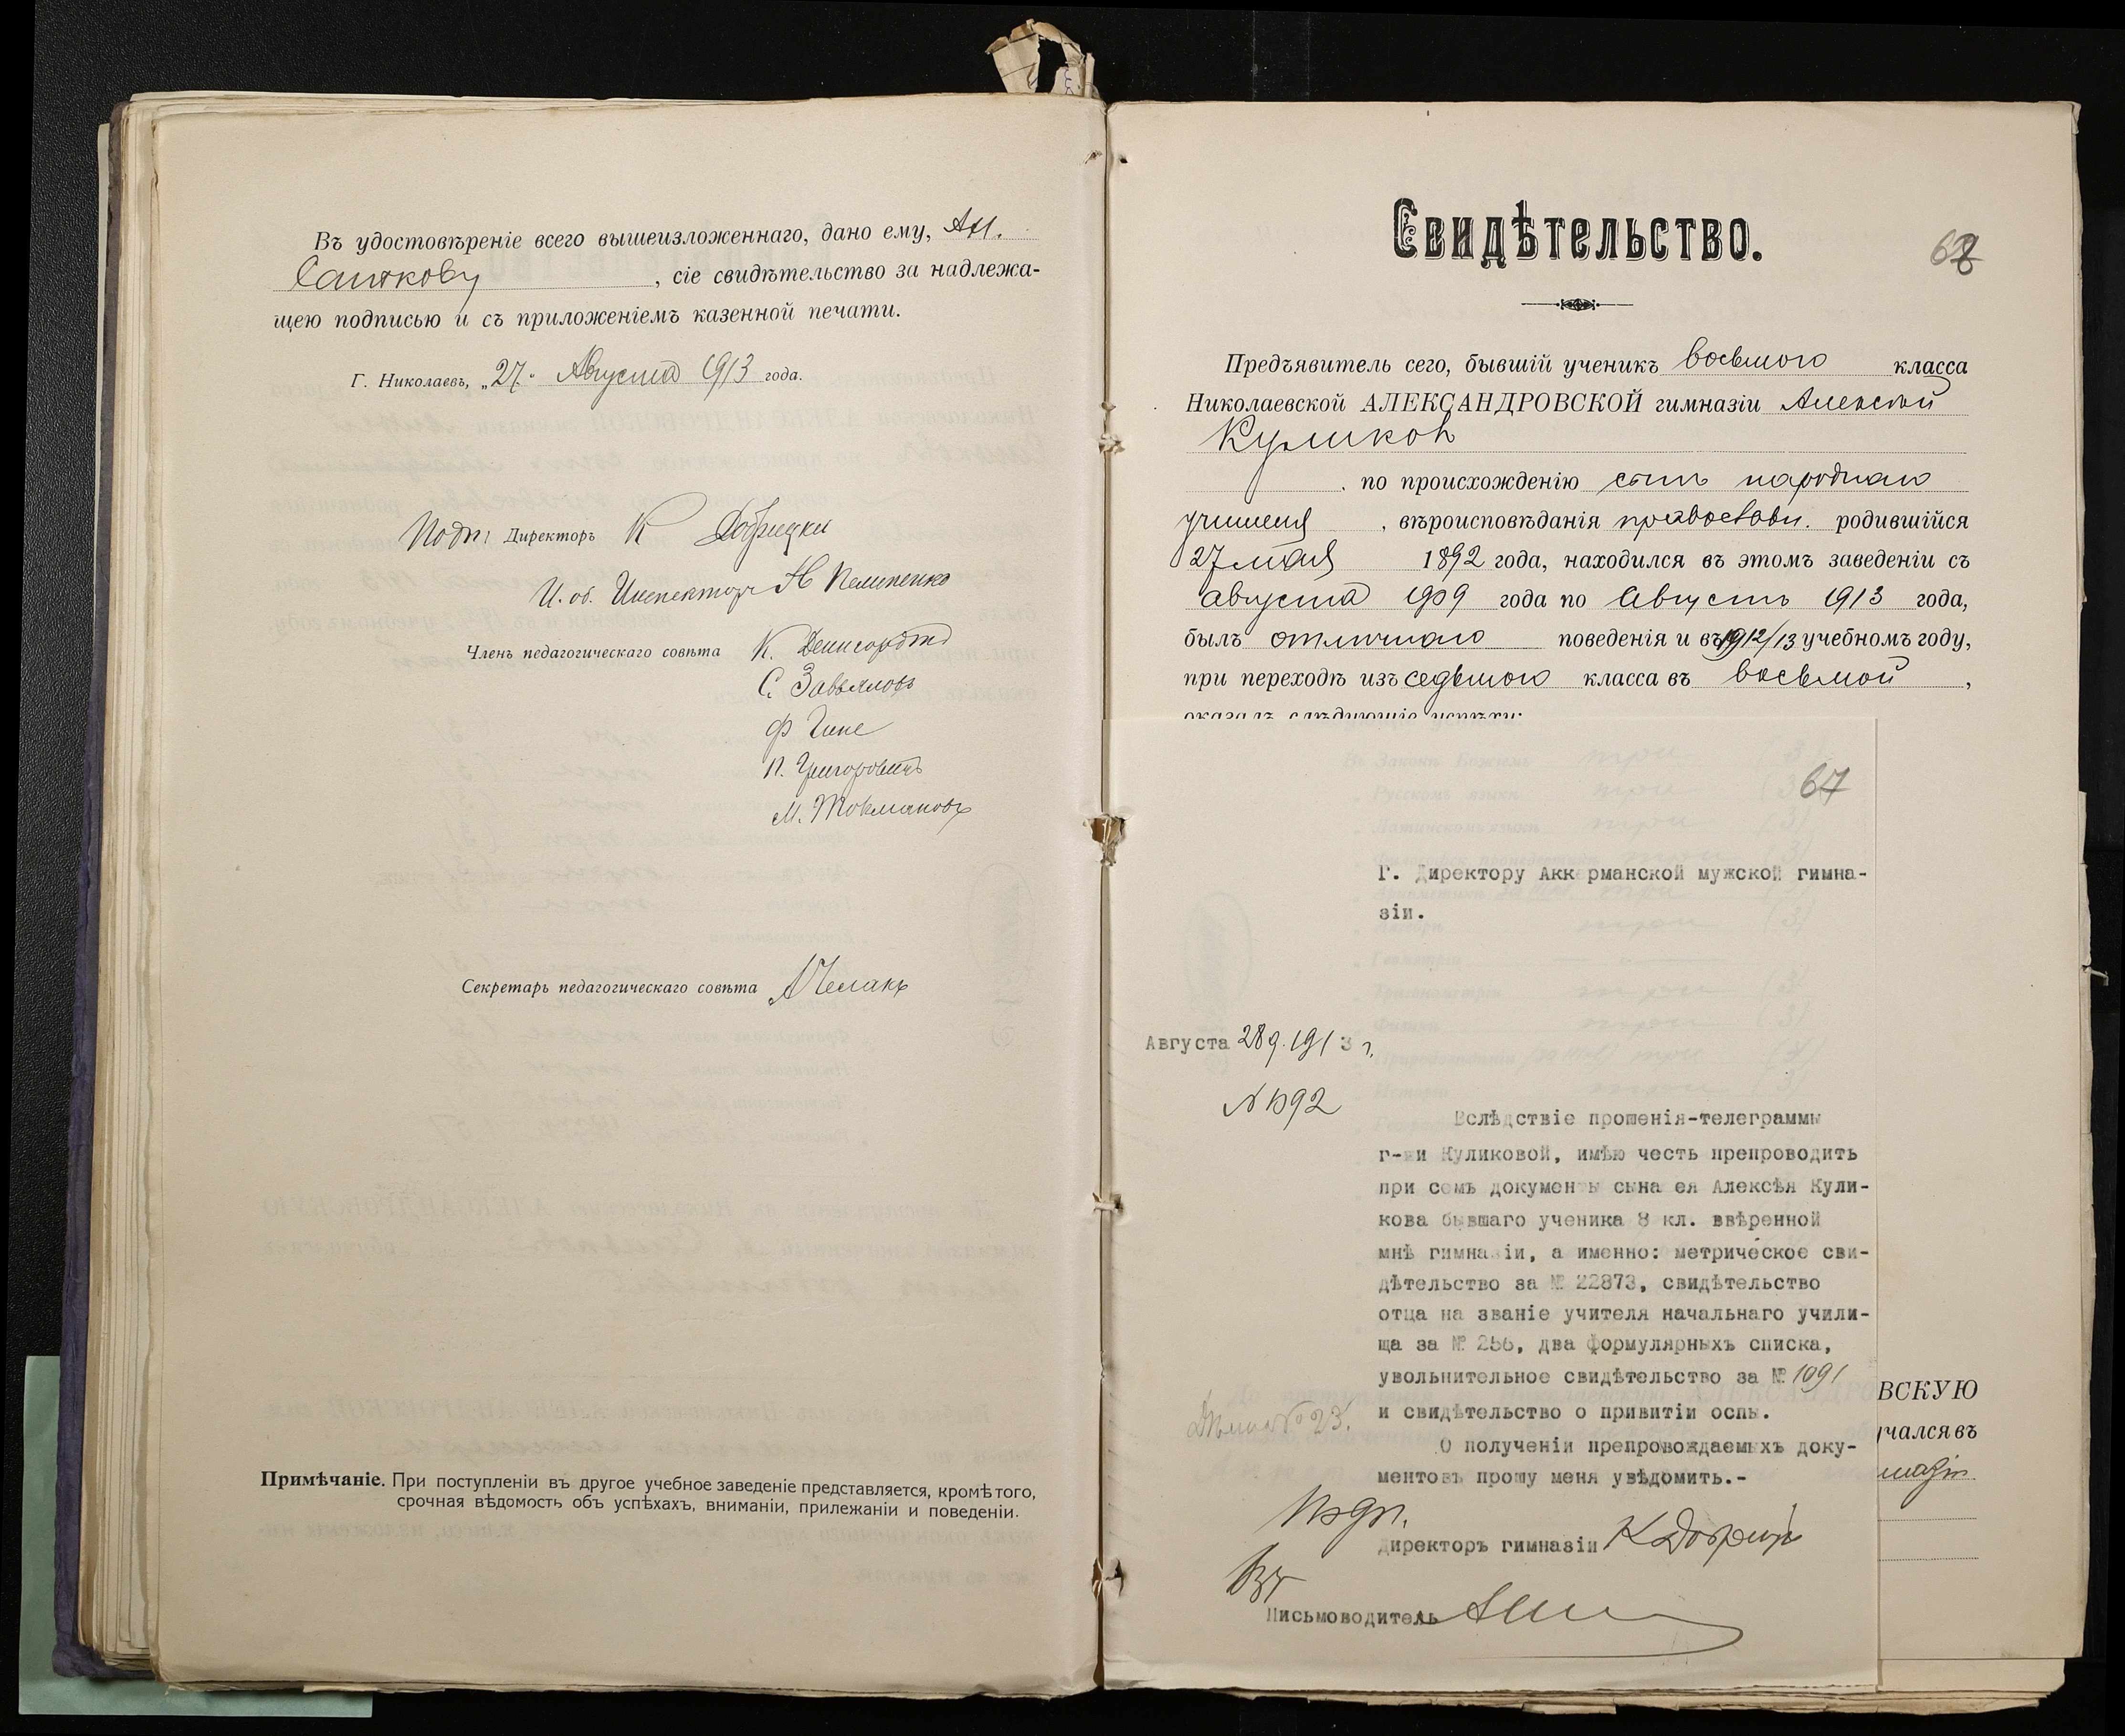 Въ удостовѣреніе всего вышеизложеннаго, дано ему, Ан.
Саткову, сіе свидѣтельство за надлежа-
щею подписью и съ приложеніемъ казенной печати.
Г. Николаевъ, „27“ Августа 1913 года.
Подп: Директоръ К
И. об. Инспектора Н
Членъ педагогическаго совѣта К.
С. Завьяловъ
Ф Гине
П. Григоровичъ
М.
Секретарь педагогическаго совѣта
Примѣчаніе. При поступленіи въ другое учебное заведеніе представляется, кромѣ того,
срочная вѣдомость объ успѣхахъ, вниманіи, прилежаніи и поведеніи.
Свидѣтельство.
68
Предъявитель сего, бывшій ученикъ восьмого класса
Николаевской АЛЕКСАНДРОВСКОЙ гимназіи Алексѣй
Куликовъ
, по происхожденію сынъ народнаго
учителя, вѣроисповѣданія православн. родившійся
27 мая 1892 года, находился въ этомъ заведеніи съ
августа 1909 года по Августъ 1913 года,
былъ отличнаго поведенія и въ 1912/13 учебномъ году,
при переходѣ изъ седьмого класса въ восьмой,
оказалъ слѣдующіе успѣхи:
67
Г. Директору Аккерманской мужской гимна-
зіи.
Августа 28 д. 1913 г.
№ 1092
Вслѣдствіе прошенія-телеграммы
г-жи Куликовой, имѣю честь препроводить
при семъ документы сына ея Алексѣя Кули-
кова бывшаго ученика 8 кл. ввѣренной
мнѣ гимназіи, а именно: метрическое сви-
дѣтельство за № 22873, свидѣтельство
отца на званіе учителя начальнаго учили-
ща за № 256, два формулярныхъ списка,
увольнительное свидѣтельство за № 1091
и свидѣтельство о привитіи оспы.
О полученіи препровождаемыхъ доку-
ментовъ прошу меня увѣдомить.-
Подп.
Директоръ гимназіи К
Письмоводитель
ВСКУЮ
учался въ